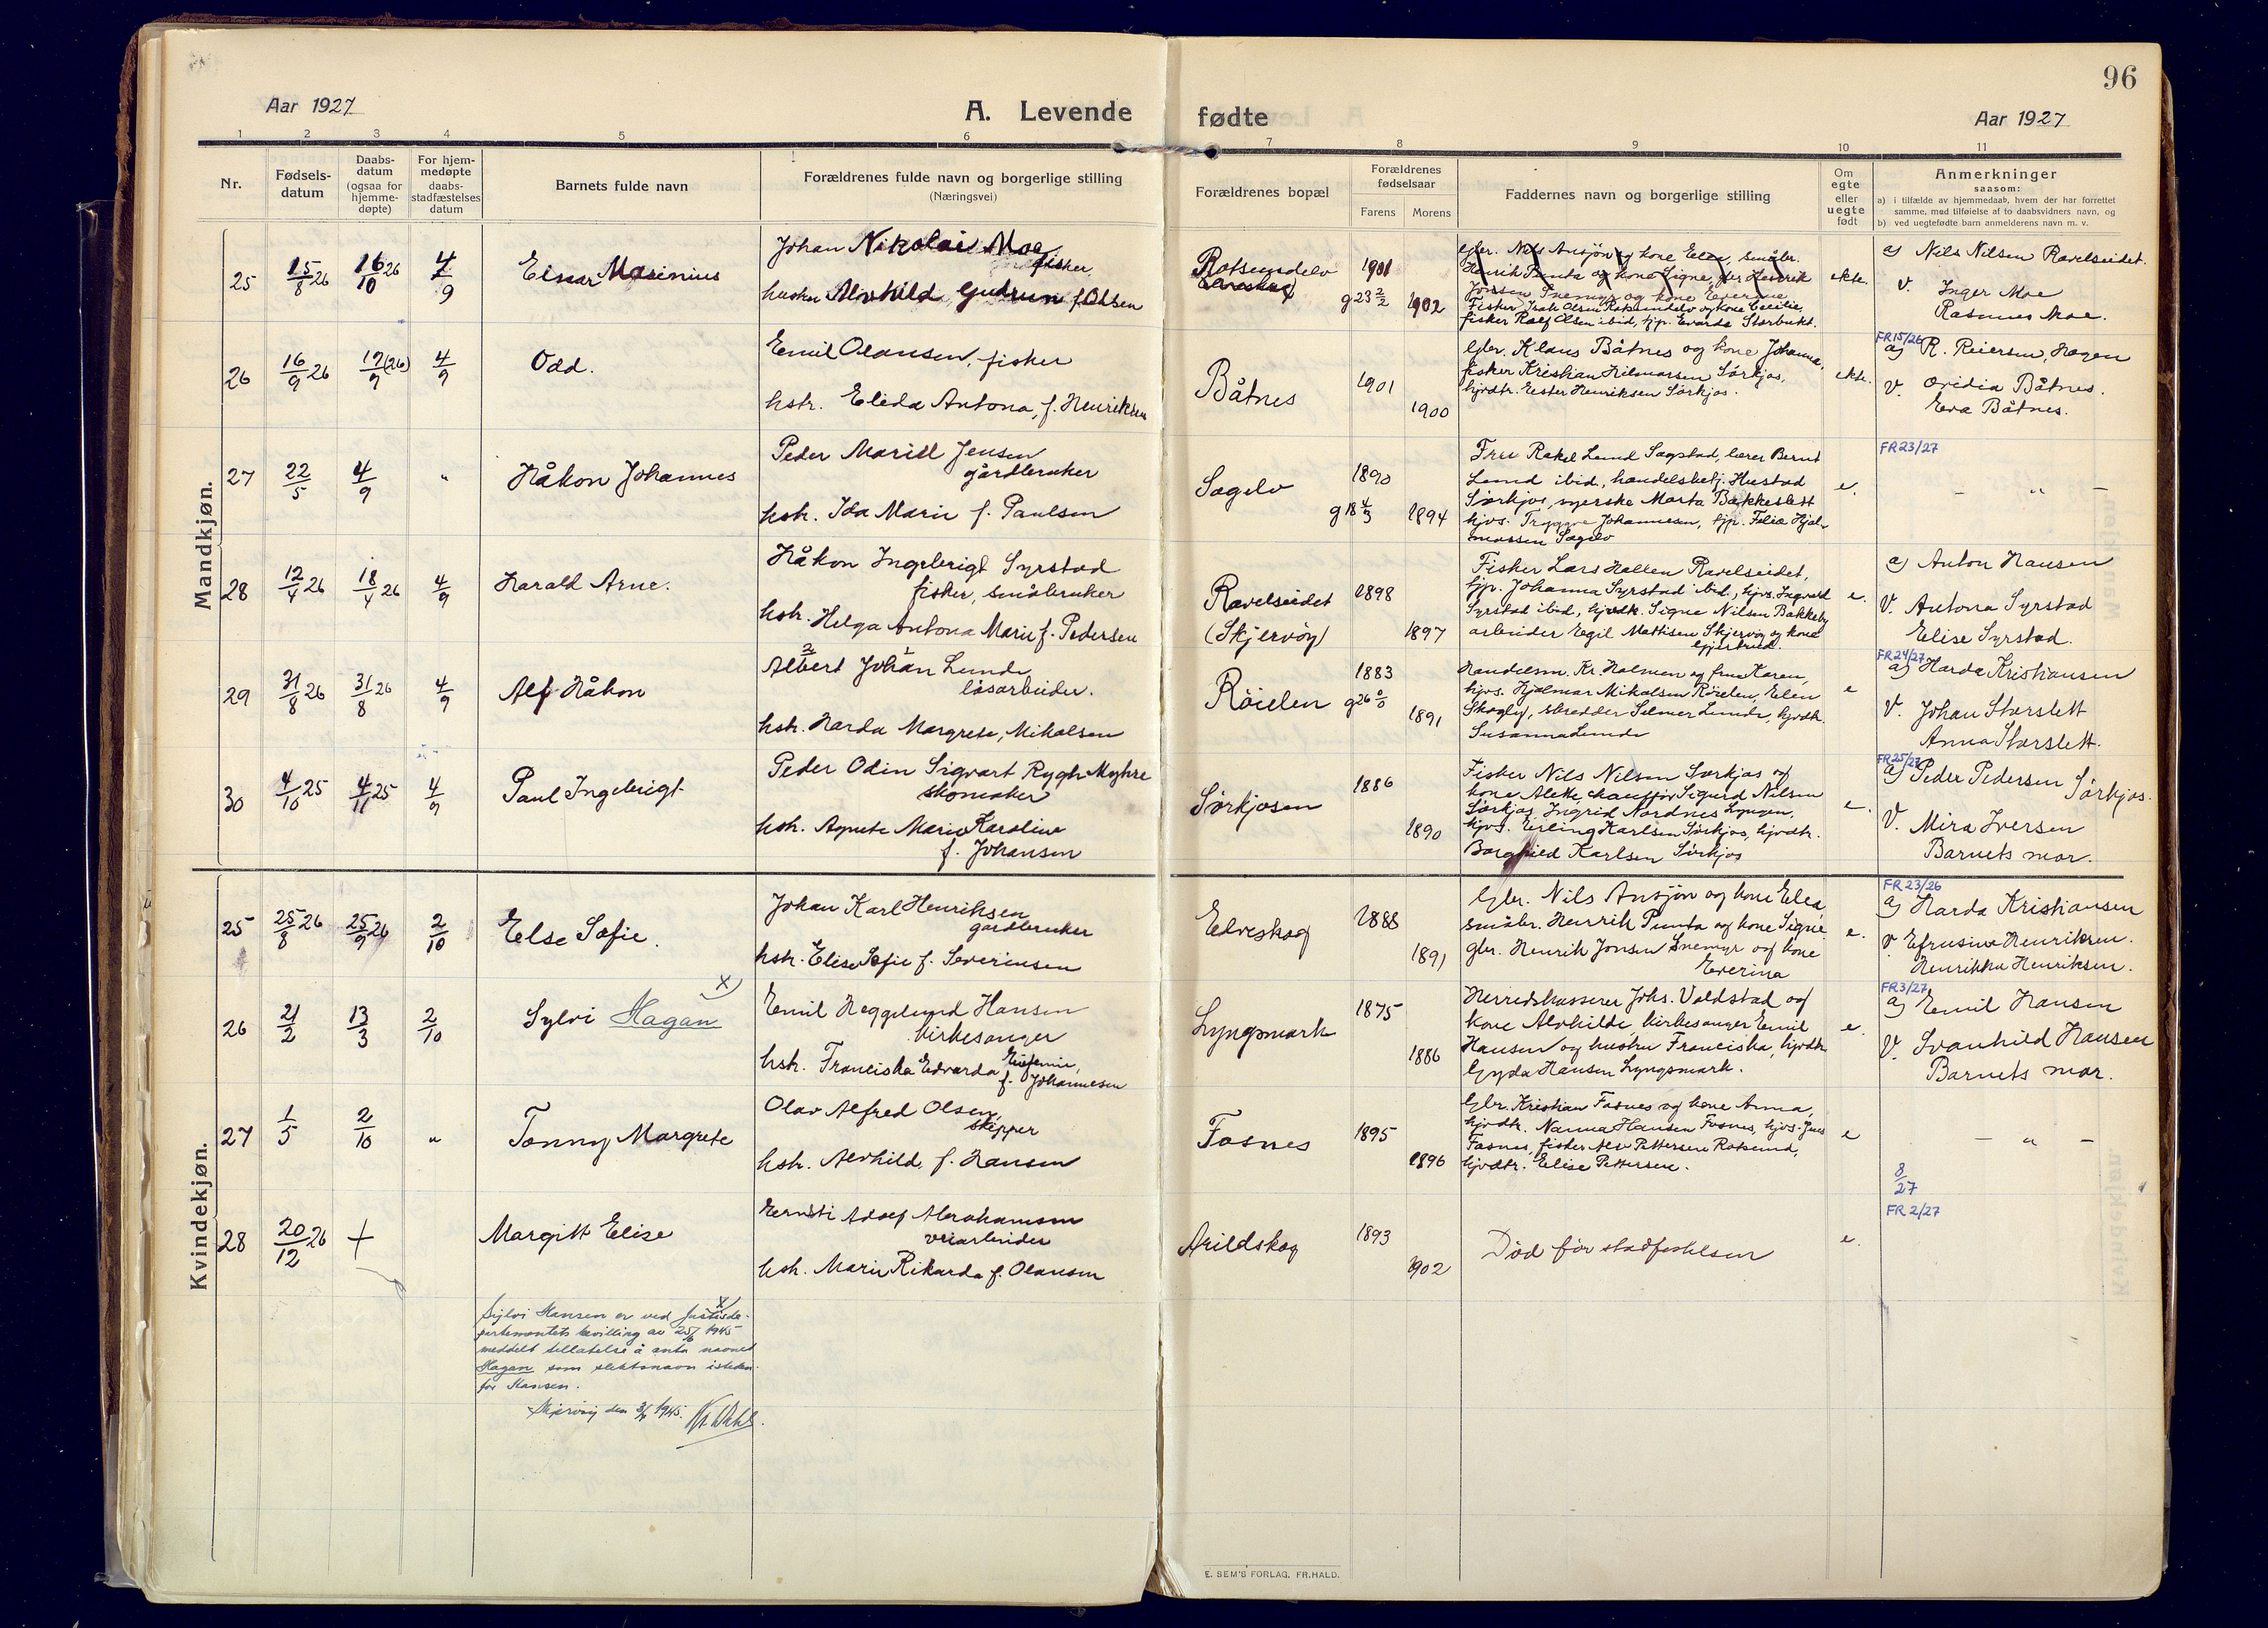 96
Aar 1927
A. Levende fødte
Aar 1927
1 2 3 4 5 6 7 8 9 10 11
Nr.
Fødsels-
datum
Daabs-
datum
(ogsaa for
hjemme-
døpte)
For hjem-
medøpte
daabs-
stadfæstelses
datum
Barnets fulde navn
Forældrenes fulde navn og borgerlige stilling
(Næringsvei)
Forældrenes bopæl
Forældrenes
fødselsaar
Farens Morens
Faddernes navn og borgerlige stilling
Om
egte
eller
uegte
født
Anmerkninger
saasom:
a) i tilfælde av hjemmedaab, hvem der har forrettet
samme, med tilføielse af to daabsvidners navn, og
b) ved uegtefødte barn anmelderens navn m. v.
Mandkjøn.
25 15/8 26 16/10 26 4/9 Einar Masinius
Johan Nikolai Moe
fisker,
hustru Alvhild Gudrun f. Olsen
Rotsundelv
Elveskog
1901
g 23 2/2 1902
Gbr. Nils Ansjøn og kone Elea, småbr.
Henrik Punta og kone Signe, gbr. Henrik
Jonsen Snemyr og kone Everine
Fisker Isak Olsen Rotsundelv og kone Cecilie,
fisker Ralf Olsen ibid, tjp. Evarda Storbukt.
ekte.
a) Nils Nilsen Ravelseidet.
V. Inger Moe
Rasmus Moe.
26 16/9 26 19/9 (26) 4/9 Odd.
Emil Olausen, fisker
hstr. Elida Antona, f. Henriksen
Båtnes
1901
1900
Gbr. Klaus Båtnes og kone Johanna,
fisker Kristian Hilmarsen Sørkjos,
hjvdtr. Ester Henriksen Sørkjos.
ekte.
FR 15/26
a) R. Reiersen, Hagen
V. Ovidia Båtnes.
Eva Båtnes.
27 22/5 4/9 " Håkon Johannes
Peder Marill Jensen
gårdbruker
hstr. Ida Marie f. Paulsen
Sagelv
1890
g 18 4/3 1894
Fru Rakel Lund Sagstad, lærer Bernt
Lund ibid, handelsbetj. Hustad
Sørkjos, syerske Marta Bakkeslett
hjvs. Tryggve Johannesen, tjp. Felia Hjal-
marsen Sagelv
e.
FR 23/27
– " –
28 12/4 26 18/4 26 4/9 Harald Arne.
Håkon Ingebrigt Syrstad
fisker, småbruker
hstr. Helga Antona Marie f. Pedersen
Ravelseidet
(Skjervøy)
1898
1897
Fisker Lars Hallen Ravelseidet,
tjp. Johanna Syrstad ibid, hjvs. Ingvard
Syrstad ibid, hjvdtr. Signe Nilsen Bakkeby
arbeider Egil Mattisen Skjervøy og kone
Gjertrud.
e.
a) Anton Hansen
V. Antona Syrstad
Elise Syrstad.
29 31/8 26 31/8 26 4/9 Alf Håkon
2 1
Albert Johan Lunde
løsarbeider.
hstr. Harda Margrete, Mikalsen
Røielen
1883
g 26 0/0 1891
Handelsm. Kr. Holmen og frue Karen,
hjvs. Hjalmar Mikalsen Røielen, Elen
Skogly, skredder Selmer Lunde, hjvdtr.
Susanna Lunde
e
FR 24/27
a) Harda Kristiansen
V. Johan Storslett
Anna Storslett.
30 4/10 25 4/11 25 4/9 Paul Ingebrigt
Peder Odin Sigvart Rygh-Myhre
skomaker
hstr. Agnete Marie Karoline
f. Johansen
Sørkjosen
1886
1890
Fisker Nils Nilsen Sørkjos og
kone Alette, chauffør Sigurd Nilsen
Sørkjos, Ingrid Nordnes Lyngen,
hjvs. Erling Karlsen Sørkjos, hjvdtr.
Borghild Karlsen Sørkjos
e.
FR 25/27
a) Peder Pedersen Sørkjos.
V. Mira Iversen
Barnets mor.
Kvindekjøn.
25 25/8 26 25/9 26 2/10 Else Sofie.
Johan Karl Henriksen
gårdbruker
hstr. Elise Sofie f. Severinsen
Elveskog
1888
1891
Gbr. Nils Ansjøn og kone Elea,
småbr. Henrik Punta og kone Signe,
gbr. Henrik Jonsen Snemyr og kone
Everina
e.
FR 23/26
a) Harda Kristiansen
V Efrusine Henriksen.
Henrikka Henriksen.
26 21/2 13/3 2/10 Sylvi Hagan x)
Emil Heggelund Hansen
kirkesanger
hstr. Franciska Edvarda Eufemie,
f. Johannesen
Lyngsmark
1875
1886
Herredskasserer Johs. Voldstad og
kone Alvhilde, kirkesanger Emil
Hansen og hustru Franciska, hjvdtr.
Gyda Hansen Lyngsmark.
e.
FR 3/27
a) Emil Hansen
V. Svanhild Hansen
Barnets mor.
27 1/5 2/10 " Tonny Margrete
Olav Alfred Olsen,
skipper
hstr. Alvhild, f. Hansen
Fosnes
1895
1896
Gbr. Kristian Fosnes og kone Anna,
hjvdtr. Nanna Hansen Fosnes, hjvs. Jens
Fosnes, fisker Alv Pettersen Rotsund,
hjvdtr. Elise Pettersen.
e
– " –
8/27
28 20/12 26 + Margitt Elise
Ernsti Adolf Abrahamsen
veiarbeider
hstr. Marie Rikarda f. Olausen
Arildskog
1893
1902
Død før stadfestelsen
e.
FR 2/27
x)
Sylvi Hansen er ved Justisde-
partementets bevilling av 25/6 1945
meddelt tillatelse å anta navnet
Hagan som slektsnavn isteden-
for Hansen.
Skjervøy den 3/7 1945.
E. SEM'S FORLAG, FR.HALD.